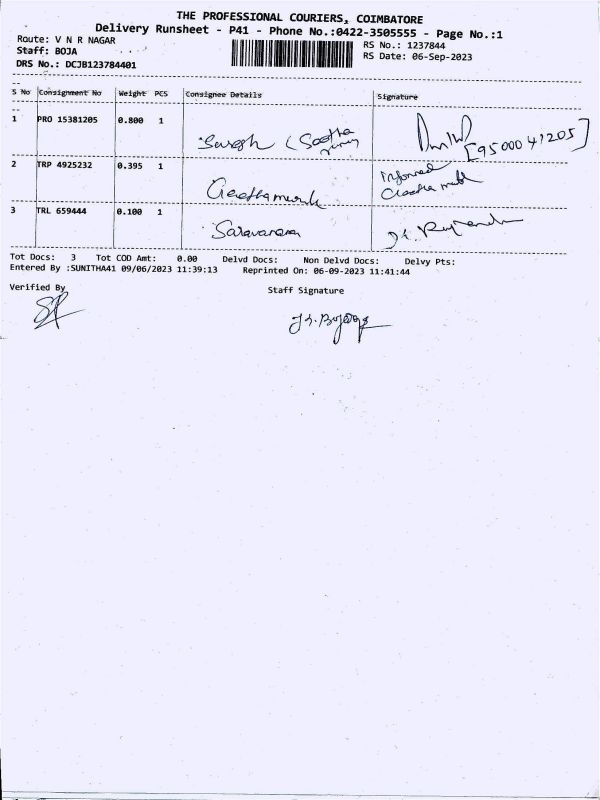 THE PROFESSIONAL COURIERS, COIMBATORE
Delivery Runsheet - P41 - Phone No.:0422-3505555 - Page No.:1
Route: V N R NAGAR
RS No.: 1237844
Staff: BOJA
RS Date: 06-Sep-2023
DRS No.: DCJB123784401
S No Consignment No Weight PCS Consignee Details Signature
1 PRO 15381205 0.800 1
Suresh
[9500041205]
2 TRP 4925232 0.395 1
Informed
3 TRL 659444 0.100 1
Saravanan
Tot Docs: 3 Tot COD Amt: 0.00 Delvd Docs: Non Delvd Docs: Delvy Pts:
Entered By :SUNITHA41 09/06/2023 11:39:13 Reprinted On: 06-09-2023 11:41:44
Verified By
Staff Signature